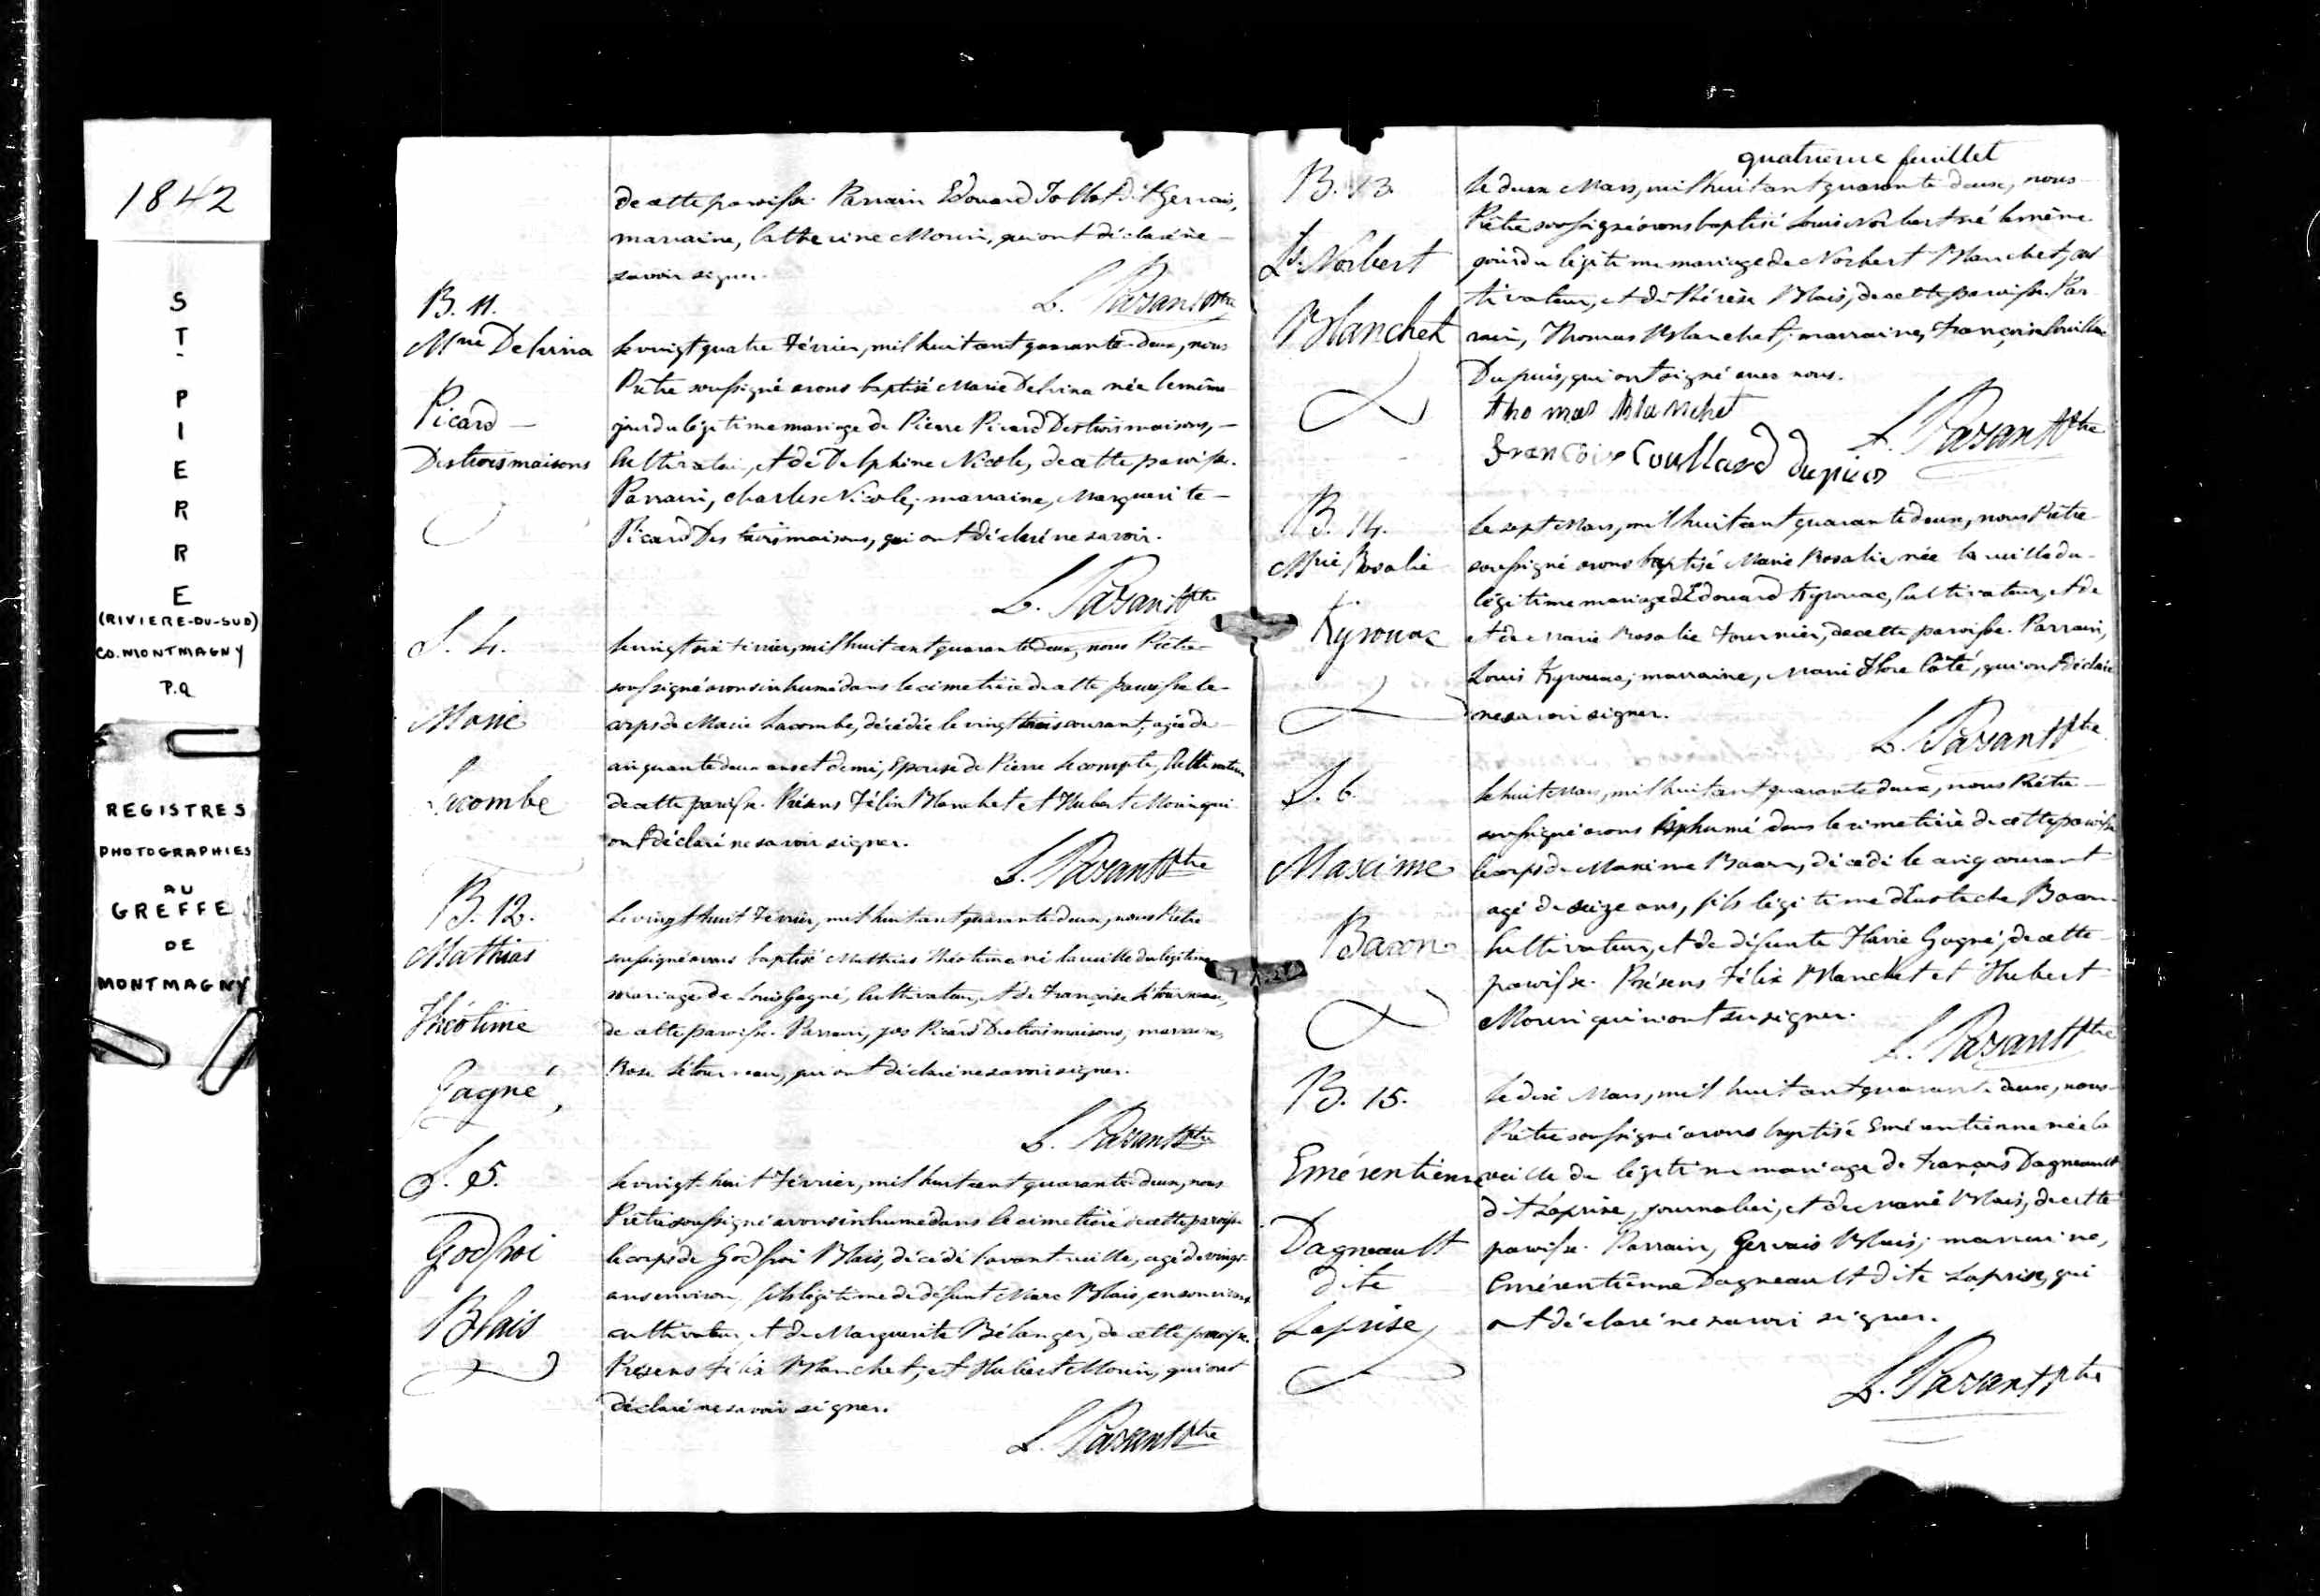 1842
ST-PIERRE
(RIVIERE-DU-SUD)
CO. MONTMAGNY
P.Q
REGISTRES
PHOTOGRAPHIES
AU
GREFFE
DE
MONTMAGNY
de cette paroisse. Parrain Edouard dit Gervais,
marraine, Catherine Morin, qui ont déclaré ne
savoir signer.
L. Parant Ptre
B. 11.
Mrie Delvina
Picard —
Destroismaisons
Le vingt quatre Février, mil huit cent quarante-deux, nous
Prêtre soussigné avons baptisé Marie Delvina née le même
jour du légitime mariage de Pierre Picard Destroismaisons, —
Cultivateur, et de Delphine Nicole, de cette paroisse.
Parrain, Charles Nicole; marraine, Marguerite —
Picard Destroismaisons, qui ont déclaré ne savoir.
L. Parant Ptre
S. 4.
Marie
Lacombe
Le vingt six Février, mil huit cent quarante deux, nous Prêtre
soussigné avons inhumé dans le cimetière de cette paroisse le
corps de Marie Lacombe, décédée le vingt trois courant, agée de
cinquante deux ans et demi, Epouse de Pierre Lecompte, Cultivateur
de cette paroisse. Présens Félix Blanchet et Hubert Morin qui
ont déclaré ne savoir signer.
L. Parant Ptre
B. 12.
Mathias
Théotime
Gagné,
Le vingt huit Février, mil huit cent quarante deux, nous Prêtre
soussigné avons baptisé Mathias Théotime né la veille du légitime
mariage de Louis Gagné, Cultivateur, et de Françoise Létourneau,
de cette paroisse. Parrain, Jos Picard Destroismaisons, marraine,
Rose Létourneau, qui ont déclaré ne savoir signer.
L. Parant Ptre
S. 5.
Godfroi
Blais
Le vingt-huit Février, mil huit cent quarante-deux, nous
Prêtre soussigné avons inhumé dans le cimetière de cette paroisse
le corps de Godfroi Blais, décédé l'avant veille, agé de vingt
ans environ, fils légitime de défunt Marc Blais, en son vivant
cultivateur et de Marguerite Bélanger, de cette paroisse.
Présens Félix Blanchet, et Hubert Morin, qui ont
déclaré ne savoir signer.
L. Parant Ptre
quatrième feuillet
B. 13.
Ls. Norbert
Blanchet
Le deux Mars, mil huit cent quarante deux, nous
Prêtre soussigné avons baptisé Louis Norbert né le même
jour du légitime mariage de Norbert Blanchet, cul
tivateur, et de Thérèse Blais, de cette paroisse. Par
rain, Thomas Blanchet; marraine, Françoise Couillard
Dupuis, qui ont signé avec nous.
thomas Blanchet
L. Parant Ptre
francoise Coullard dupuis
B. 14.
Mrie Rosalie
Kyrouac
Le sept Mars, mil huit cent quarante deux, nous Prêtre
soussigné avons baptisé Marie Rosalie née la veille du
légitime mariage d'Edouard Kyrouac, Cultivateur, et de
et de Marie Rosalie Fournier, de cette paroisse. Parrain,
Louis Kyrouac; marraine, Marie Flore Côté, qui ont déclaré
ne savoir signer.
L. Parant Ptre
S. 6.
Maxime
Bacon
Le huit Mars, mil huit cent quarante deux, nous Prêtre
soussigné avons inhumé dans le cimetière de cette paroisse
le corps de Maxime Bacon, décédé le cinq courant
agé de seize ans, fils légitime d'Eustache Bacon
Cultivateur, et de défunte Flavie Gagné, de cette
paroisse. Présens Félix Blanchet et Hubert
Morin qui n'ont su signer.
L. Parant Ptre
B. 15.
Emérentienne
Dagneault
dite
Laprise
Le dix Mars, mil huit cent quarante deux, nous
Prêtre soussigné avons baptisé Emérentienne née la
veille du légitime mariage de François Dagneault
dit Laprise, journalier, et de Marie Blais, de cette
paroisse. Parrain, Gervais Blais; marraine,
Emérentienne Dagneault dite Laprise, qui
ont déclaré ne savoir signer.
L. Parant Ptre